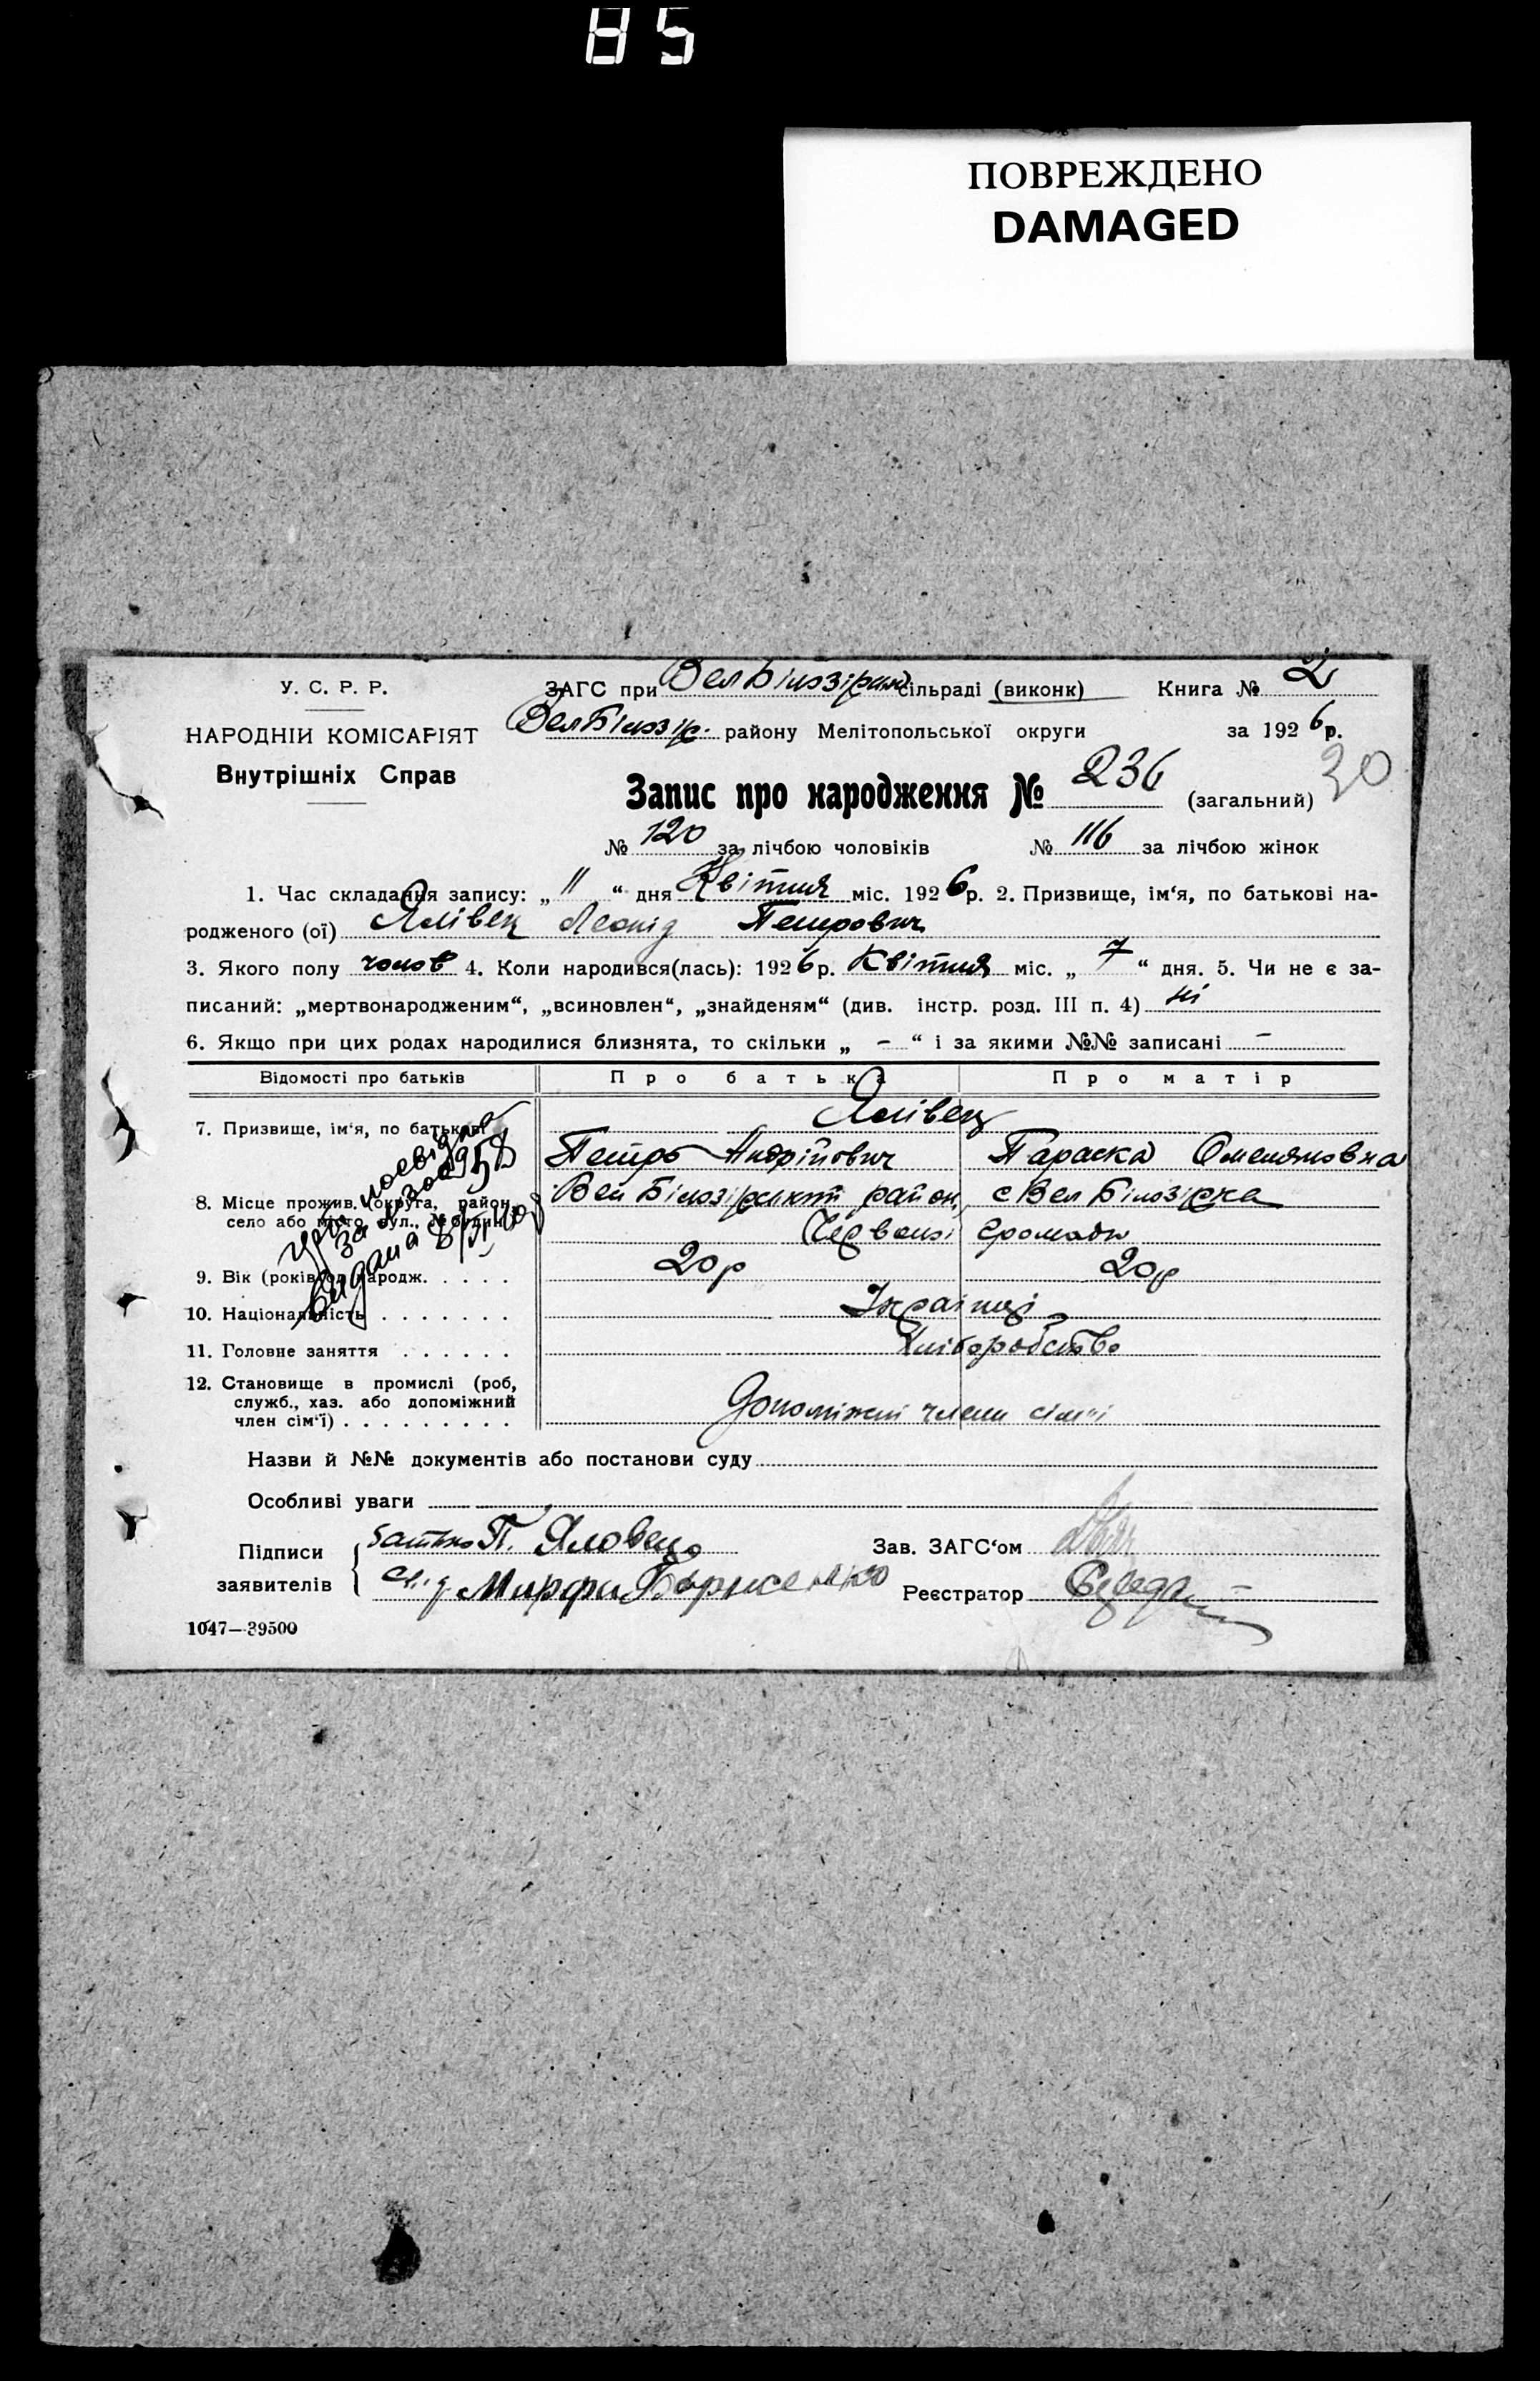 85
ПОВРЕЖДЕНО
DAMAGED
У. С. Р. Р.
НАРОДНІЙ КОМІСАРІЯТ
Внутрішніх Справ
ЗАГС при ВелБілозірск сільраді (виконк) Книга № 2
ВелБілозір. району Мелітопольської округи за 1926 р.
30
Запис про народження № 236 (загальний)
№ 120 за лічбою чоловіків № 116 за лічбою жінок
1. Час складання запису: „ 11 “ дня Квітня міс. 1926 р. 2. Призвище, ім‘я, по батькові на-
родженого (ої) Ялівец Леонід Петрович
3. Якого полу чолов 4. Коли народився(лась): 1926 р. Квітня міс. „ 7 “ дня. 5. Чи не є за-
писаний: „мертвонародженим“, „всиновлен“, „знайденям“ (див. інстр. розд. III п. 4) ні
6. Якщо при цих родах народилися близнята, то скільки „ - “ і за якими №№ записані -
Відомості про батьків Про батька Про матір
7. Призвище, ім‘я, по батькові Ялівец
Петро Андрійович Параска Омеляновна
8. Місце прожив. (округа, район, село або місто, вул., № будин. Вел Білозірський район, с Вел Білозірка
Червоної громади
9. Вік (років) од народж. . . . . 20р 20р
10. Національність . . . . . . . Українці
11. Головне заняття . . . . . . Хліборобство
12. Становище в промислі (роб,
служб., хаз. або допоміжний
член сім‘ї) . . . . . . . . . Допоміжні члени сім"і
видана
Назви й №№ документів або постанови суду
Особливі уваги
Підписи заявителів { батько П. Яловец
Зав. ЗАГС‘ом
Реєстратор
1047—39500